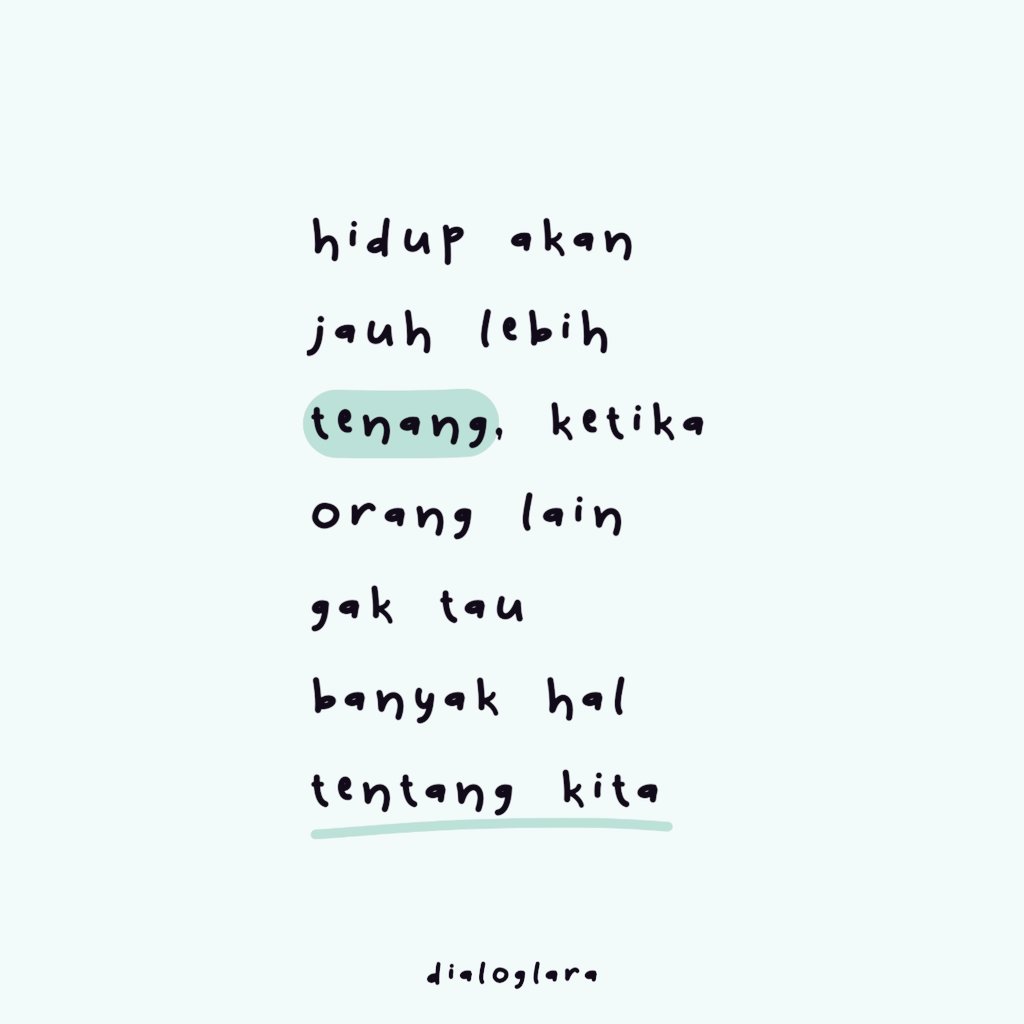 hidup akan
jauh lebih
tenang, ketika
orang lain
gak tau
banyak hal
tentang kita
dialoglara